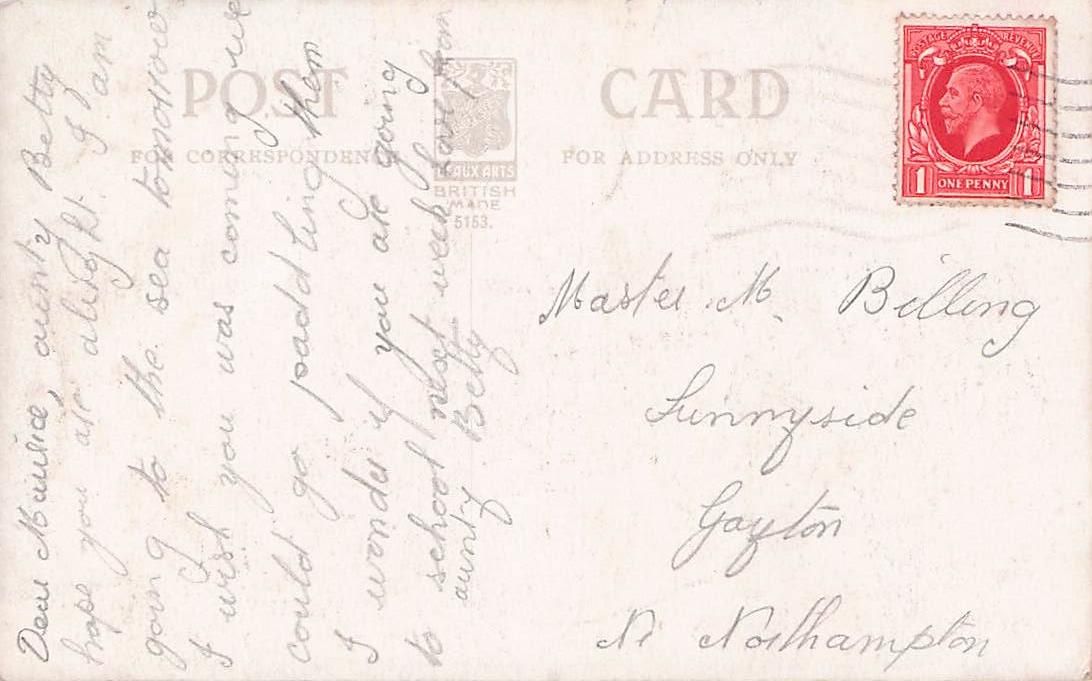 POST CARD
FOR CORRESPONDENCE
FOR ADDRESS ONLY
BEAUX ARTS
BRITISH
MADE
5153.
POSTAGE REVENUE
1 ONE PENNY 1
Dear Maurice, aunty Betty
hope you are alright. I am
going to the sea tomorrow
I wish you was coming we
could go paddling then
I wonder if you are going
to school next week love from
aunty Betty
Master M. Billing
Sunnyside
Gayton
Nr Northampton